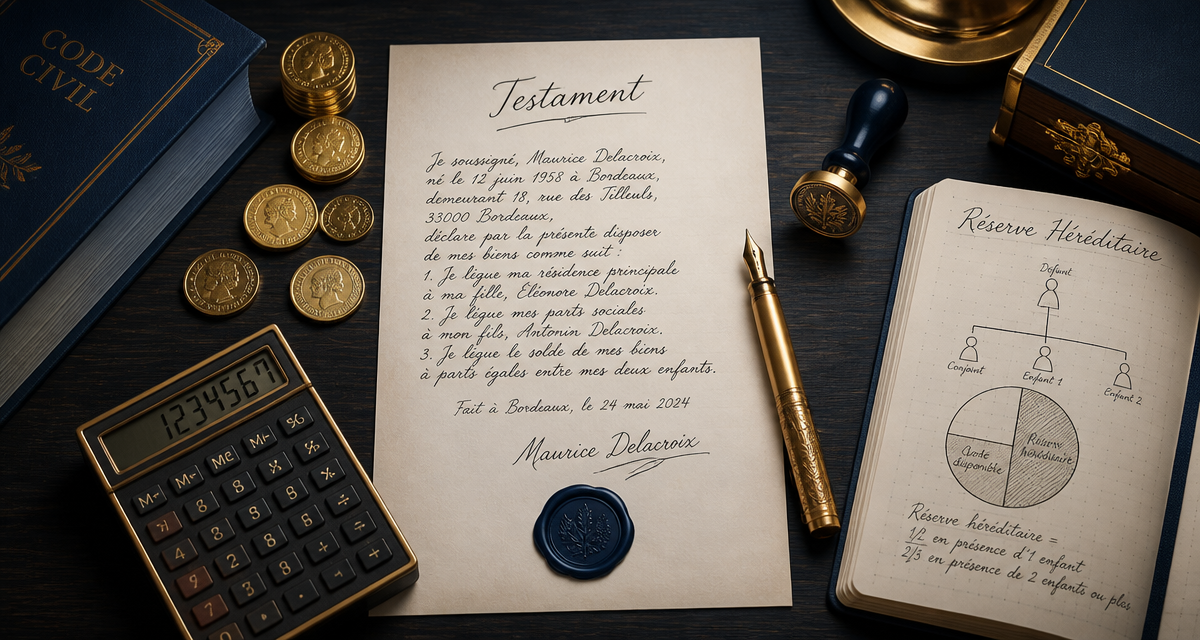 CODE
CIVIL
Testament
Je soussigné, Maurice Delacroix,
né le 12 juin 1958 à Bordeaux,
demeurant 18, rue des Tilleuls,
33000 Bordeaux,
déclare par la présente disposer
de mes biens comme suit :
1. Je lègue ma résidence principale
à ma fille, Éléonore Delacroix.
2. Je lègue mes parts sociales
à mon fils, Antonin Delacroix.
3. Je lègue le solde de mes biens
à parts égales entre mes deux enfants.
Fait à Bordeaux, le 24 mai 2024
Maurice Delacroix
1234567
Réserve Héréditaire
Défunt
Conjoint
Enfant 1
Enfant 2
disponible
héréditaire
Réserve héréditaire =
1/2 en présence d'1 enfant
2/3 en présence de 2 enfants ou plus